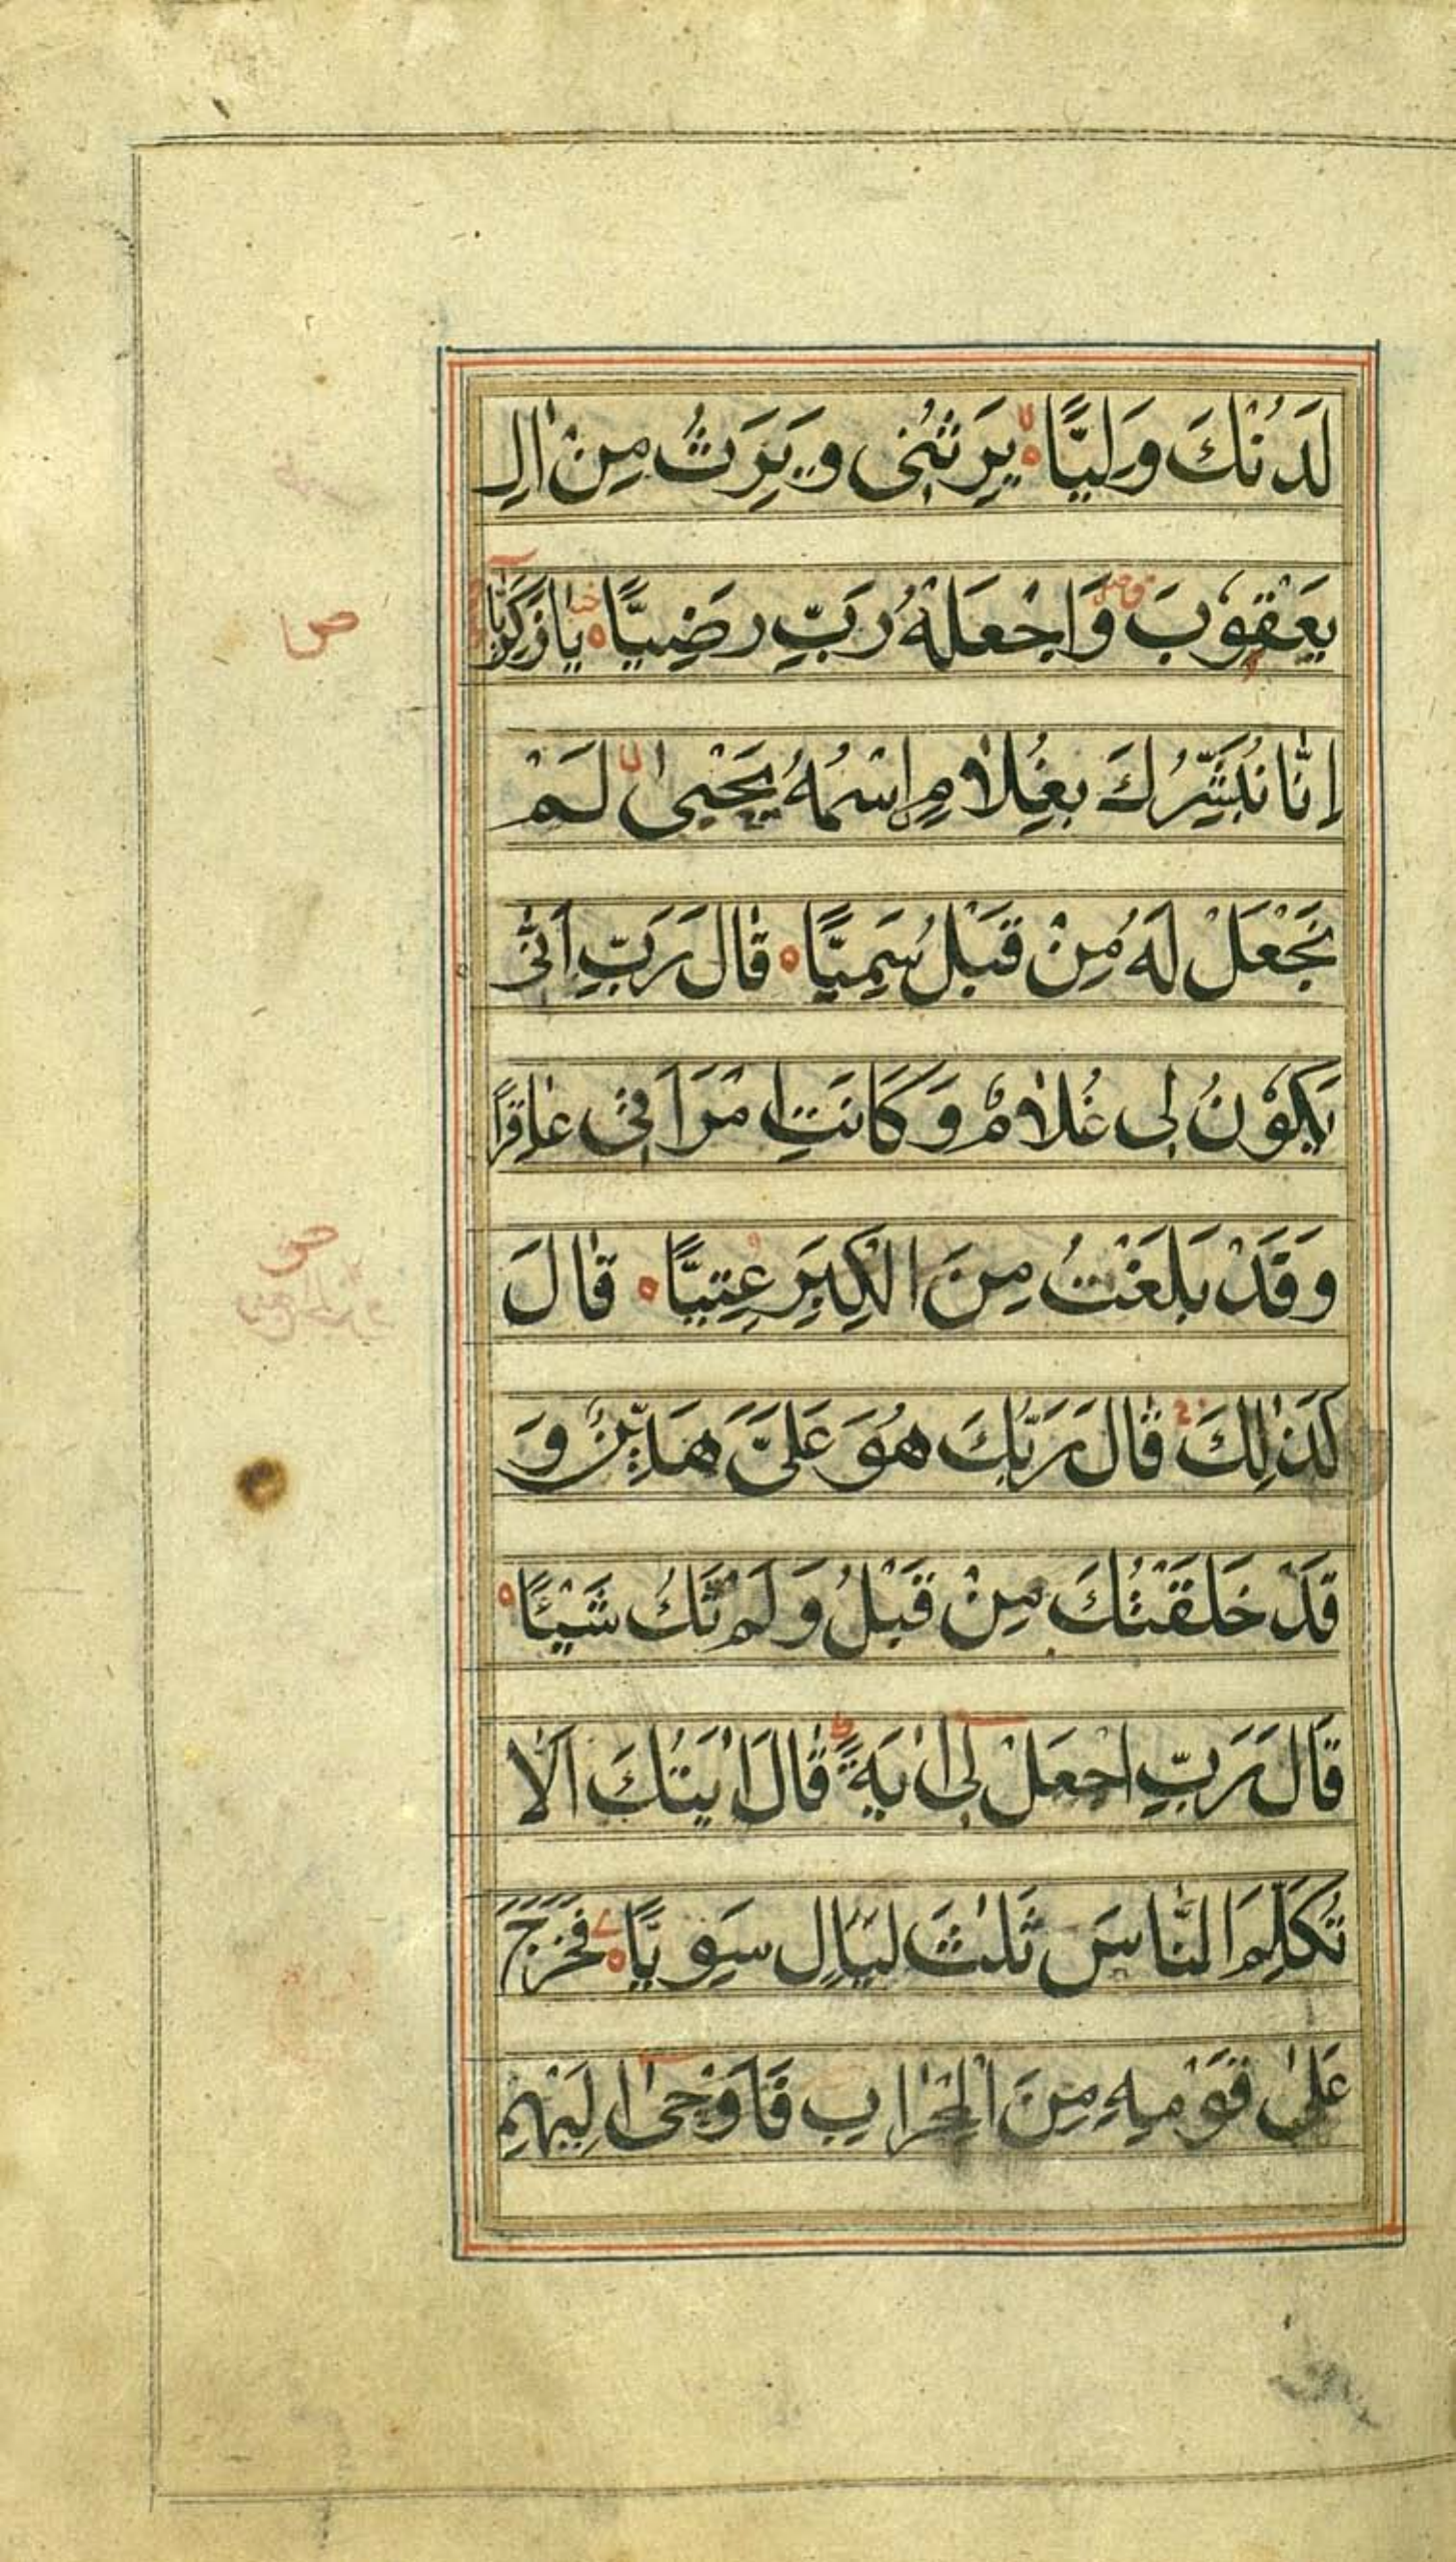 لَدُنْكَ وَلِيًّا يَرِثُنِى وَيَرِثُ مِنْ اٰلِ
يَعْقُوْبَ وَاجْعَلْهُ رَبِّ رَضِيًّا يَا زَكَرِيَّا
اِنَّا نُبَشِّرُكَ بِغُلَامِ اسْمُهُ يَحْيىٰ لَمْ
نَجْعَلْ لَهُ مِنْ قَبْلُ سَمِيًّا قَالَ رَبِّ اَنّٰى
يَكُوْنُ لِى غُلَامٌ وَكَانَتِ امْرَاَتِى عَاقِرًا
وَقَدْ بَلَغْتُ مِنَ الْكِبَرِ عِتِيًّا قَالَ
كَذٰلِكَ قَالَ رَبُّكَ هُوَ عَلَىَّ هَيِّنٌ وَ
قَدْ خَلَقْتُكَ مِنْ قَبْلُ وَلَمْ تَكُ شَيْئًا
قَالَ رَبِّ اجْعَلْ لِى اٰيَةً قَالَ اٰيَتُكَ اَلَّا
تُكَلِّمَ النَّاسَ ثَلٰثَ لَيَالٍ سَوِيًّا فَخَرَجَ
عَلىٰ قَوْمِهِ مِنَ الْمِحْرَابِ فَاَوْحىٰ اِلَيْهِمْ
ص
ص